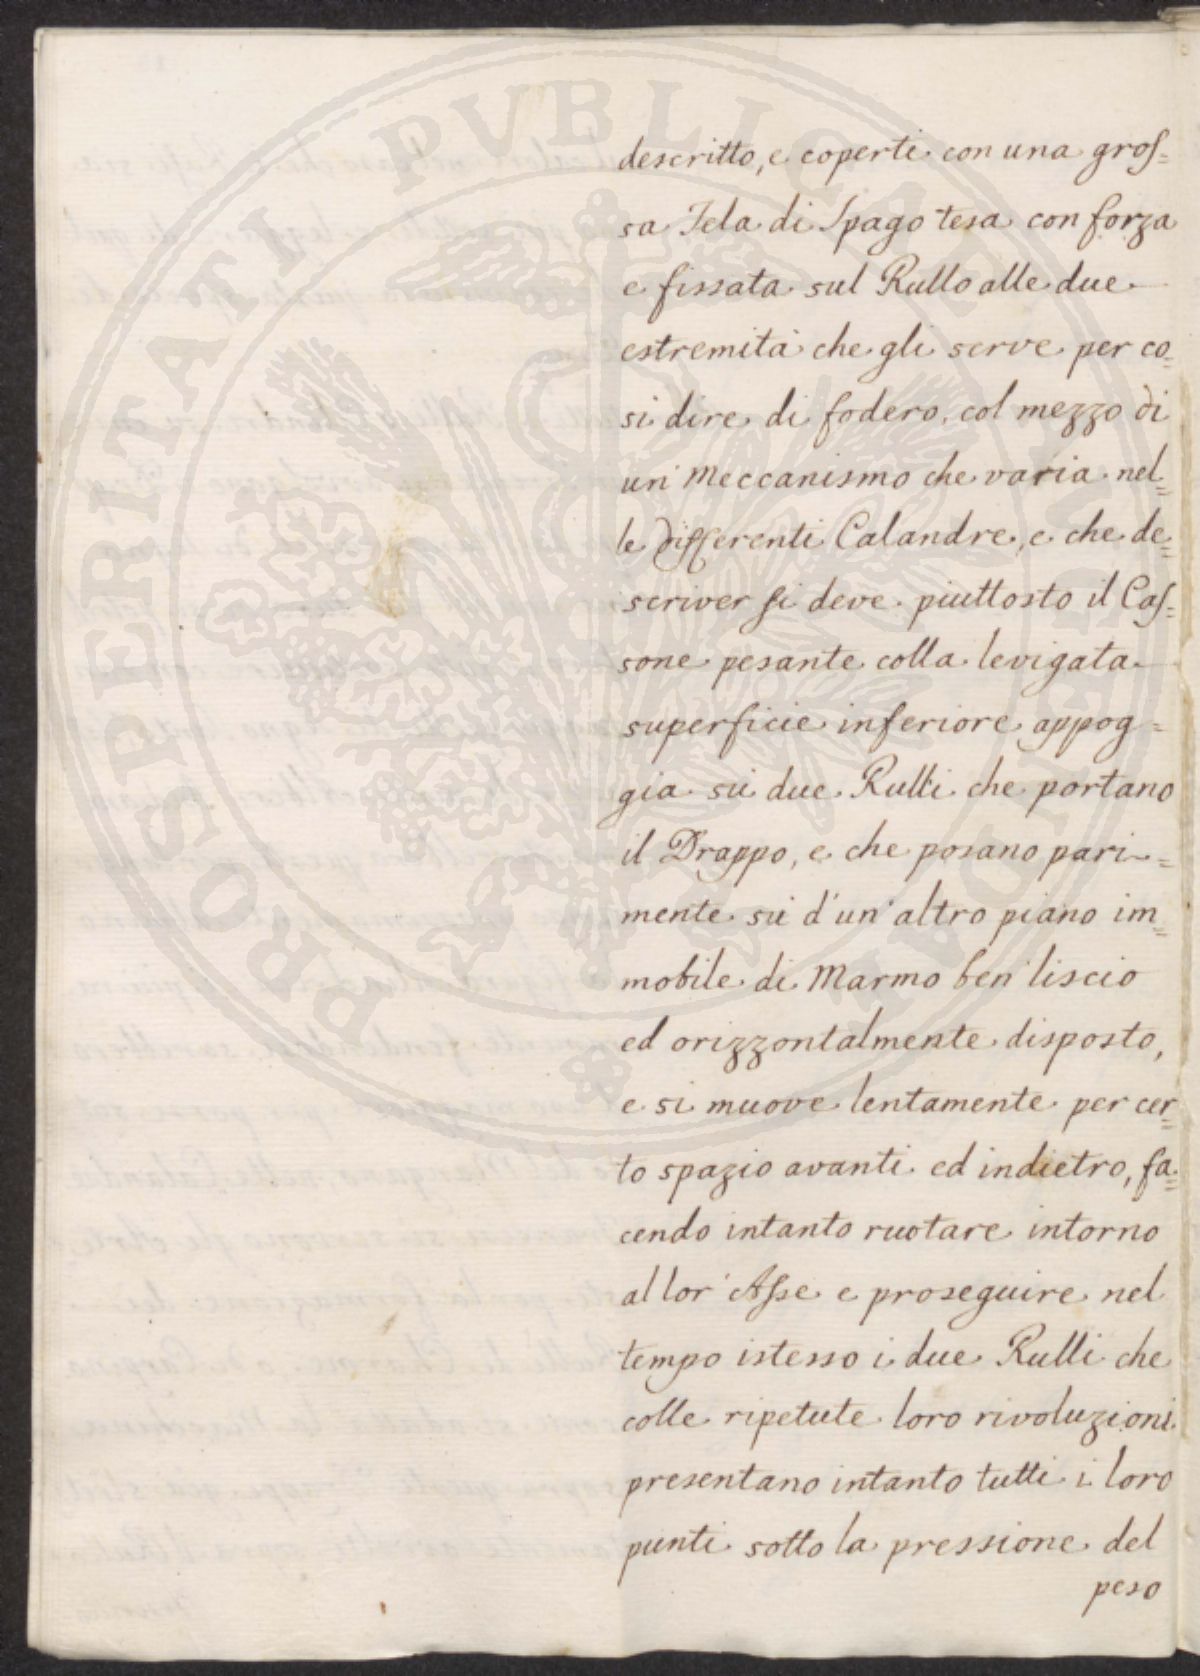 PROSPERITATI PUBLICAE AUGENDAE
descritto, e coperti con una gros=
sa Tela di Spago tesa con forza
e fissata sul Rullo alle due
estremità che gli serve per co=
si dire di fodero, col mezzo di
un' Meccanismo che varia nel=
le differenti Calandre, e che de=
scriver si deve piuttosto il Cas=
sone pesante colla levigata
superficie inferiore appog=
gia sù due Rulli che portano
il Drappo, e che posano pari=
mente sù d'un' altro piano im=
mobile di Marmo ben' liscio
ed orizzontalmente disposto,
e si muove lentamente per cer=
to spazio avanti ed indietro, fa=
cendo intanto ruotare intorno
al lor' Asse e proseguire nel
tempo istesso i due Rulli che
colle ripetute loro rivoluzioni
presentano intanto tutti i loro
punti sotto la pressione del
peso